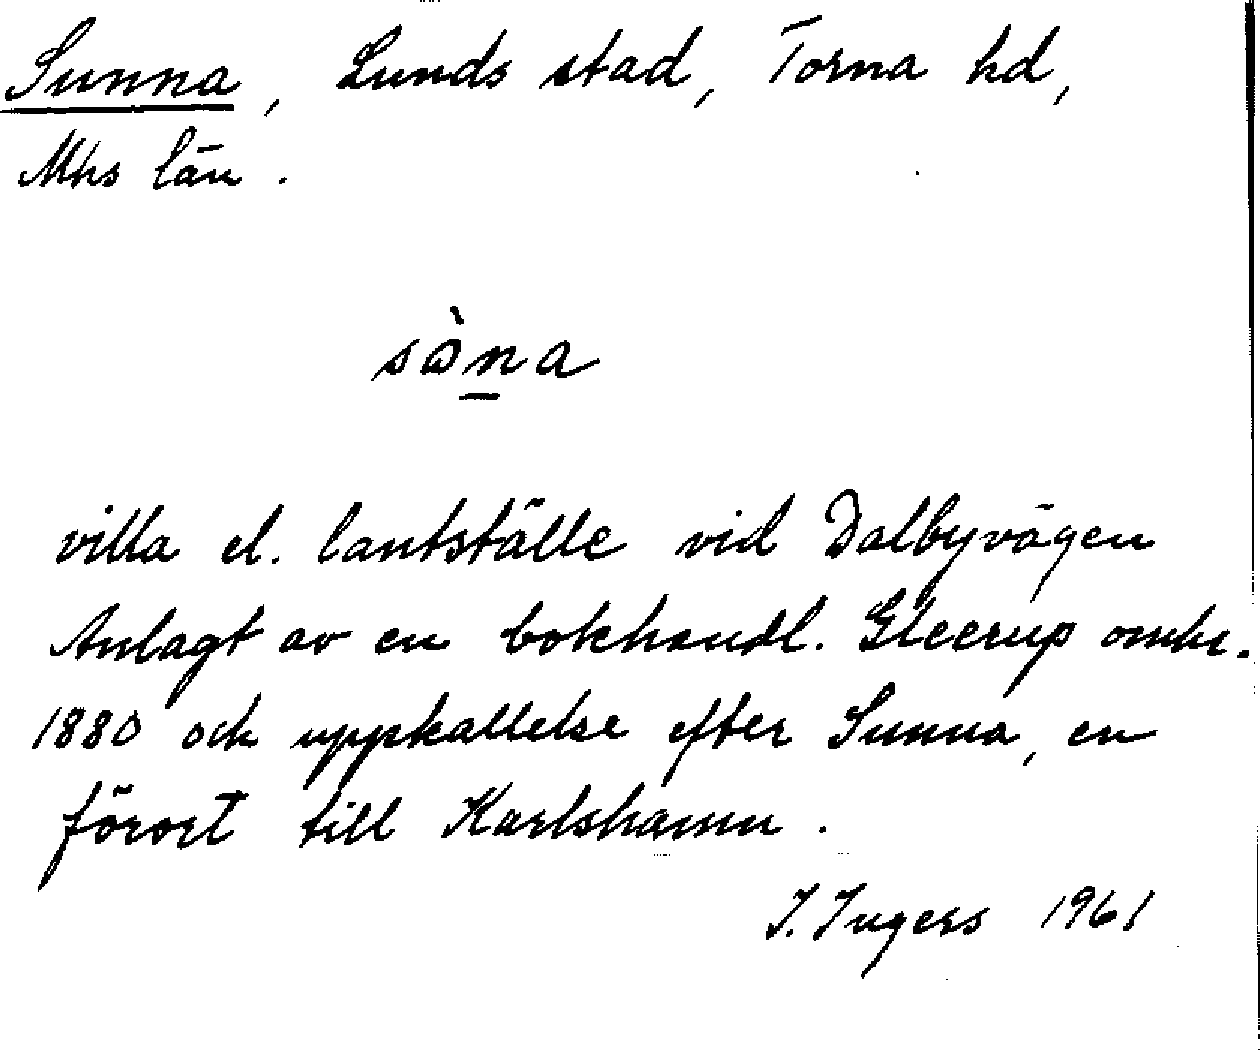 Sunna, Lunds stad, Torna hd,
Mhs län.
sòn̲a
villa el. lantställe vid Dalbyvägen
Anlagt av en bokhandl. Gleerup omkr.
1880 och uppkallelse efter Sunna, en
förort till Karlshamn.
I. Ingers 1961